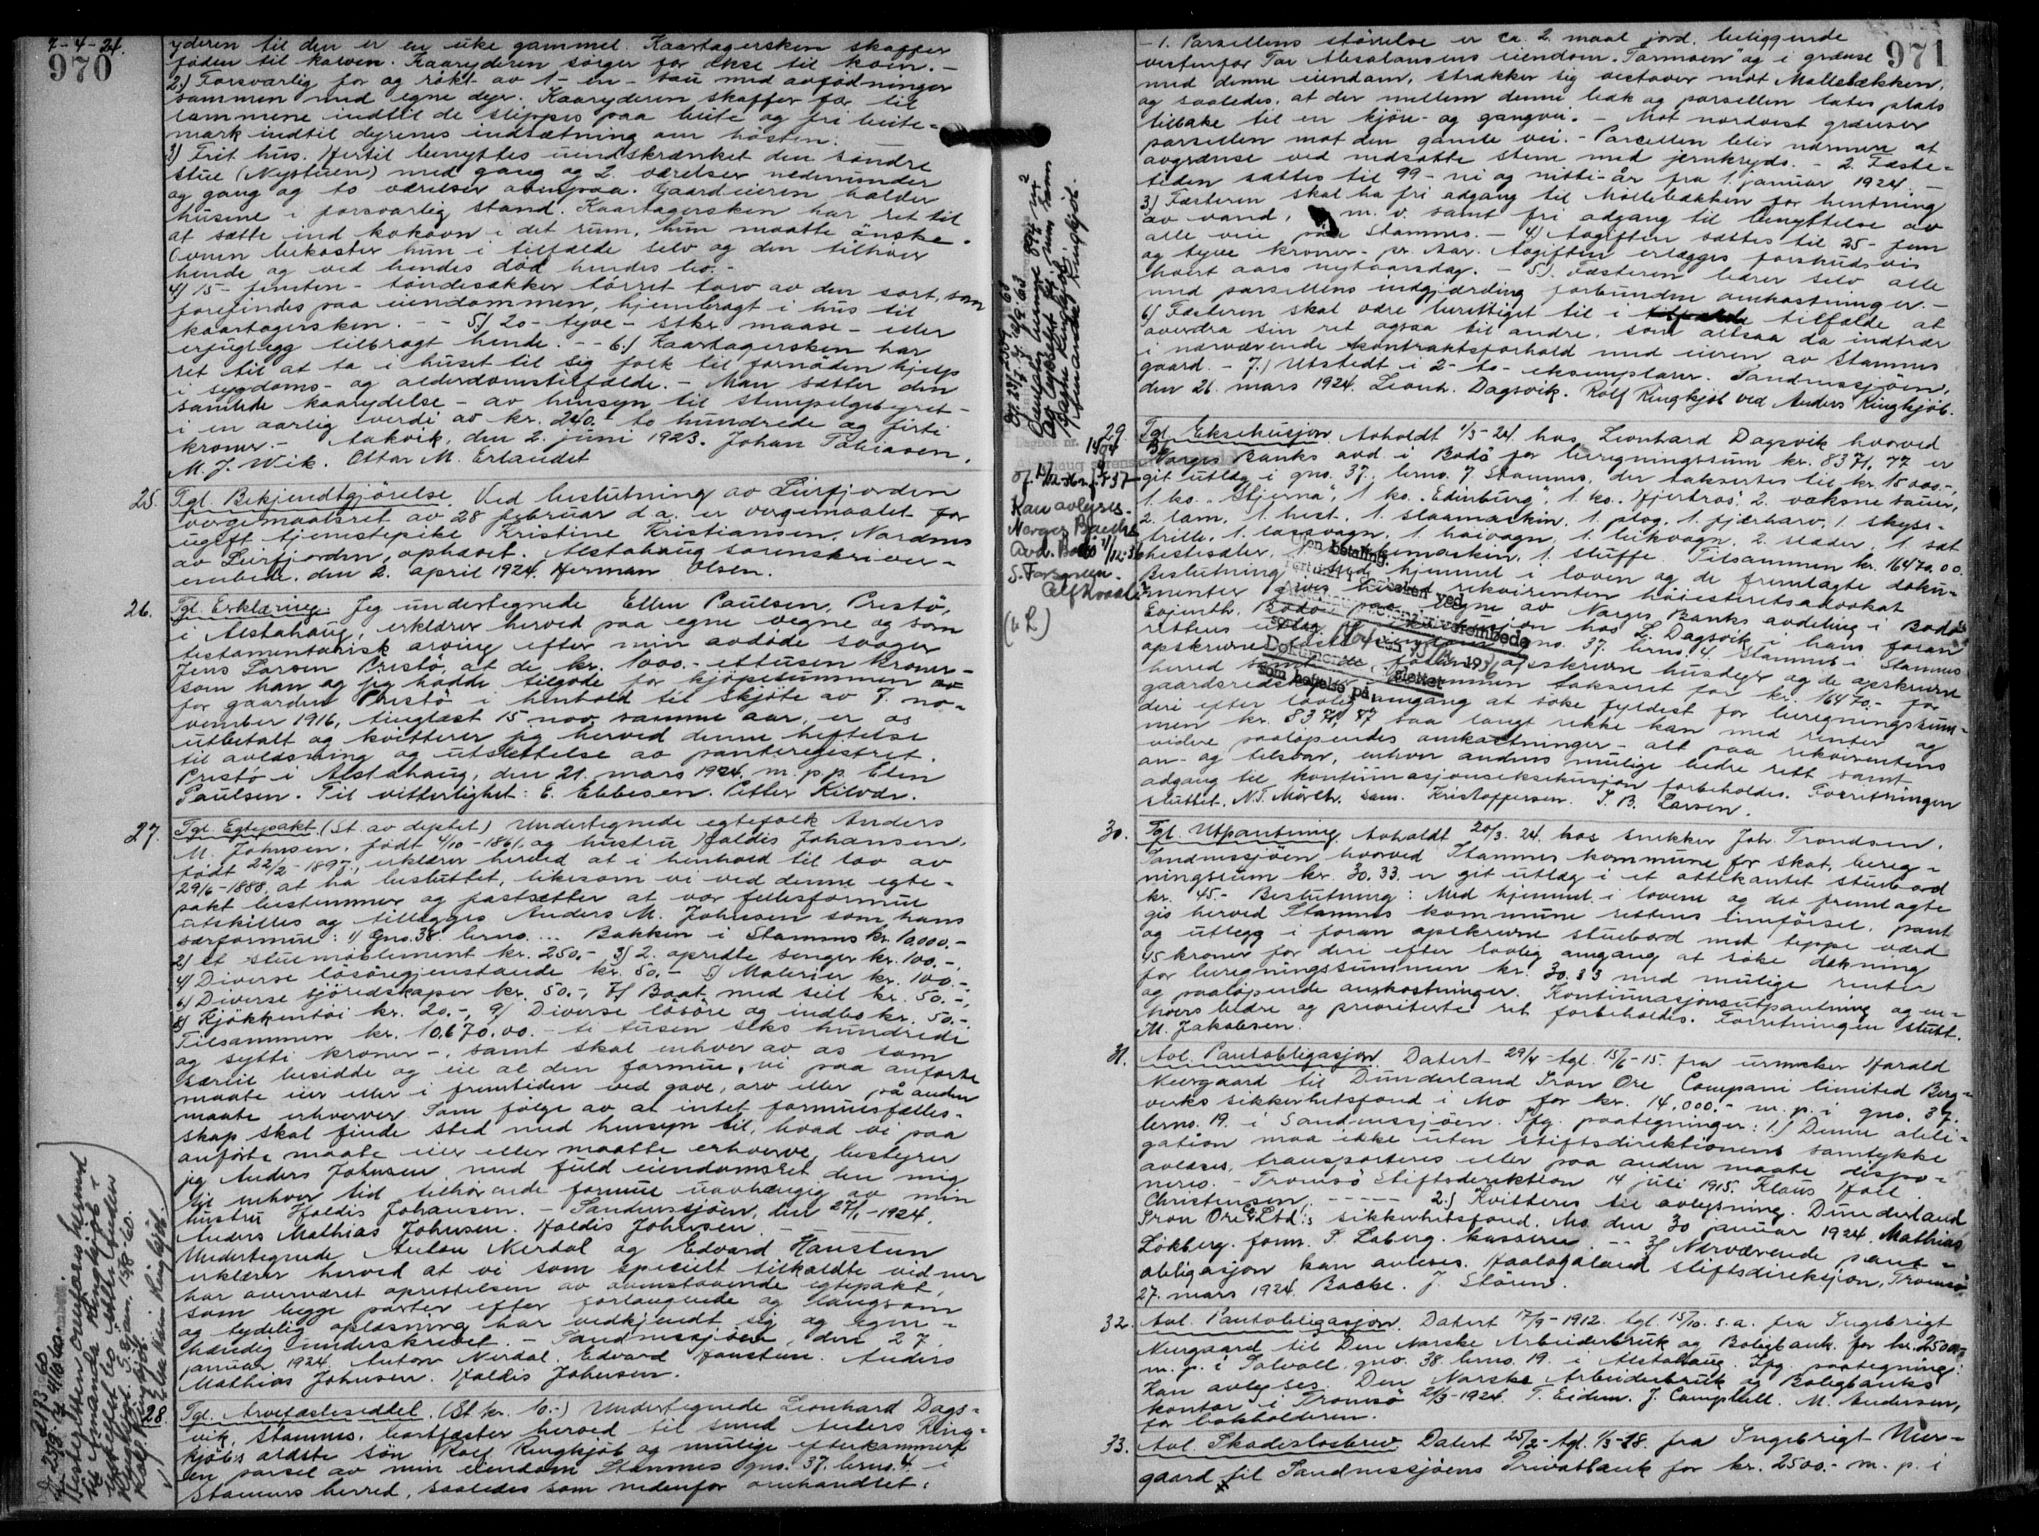 7-4-24.
970
yderen til den er en uke gammel. Kaartagersken skaffer
föden til kalven. Kaaryderen sörger for okse til koen.-
2) Forsvarlig for og rökt av 1-en-sau med avfödninger
sammen med egne dyr. Kaaryderen skaffer for til
lammene indtil de slippes paa beite og fri beite-
mark indtil dyrenes indsætning om hösten.
3) Frit hus. Hertil benyttes uindskrænket den söndre
stue (Nystuen) med gang og 2 værelser nedenunder
og gang og to værelser ovenpaa. Gaardeieren holder
husene i forsvarlig stand. Kaartagersken har ret til
at sætte ind kokovn i det rum, hun maatte önske.
Ovnen bekoster hun i tilfælde selv og den tilhörer
hende og ved hendes död hendes bo.-
4) 15-femten- töndesækker törret torv av den sort, som
forefindes paa eiendommen, hjembragt i hus til
kaartagersken. - - 5) 20-tyve-stkr. maase- eller
erfuglegg tilbragt hende. - - 6.) Kaartagersken har
ret til at ta i huset til sig folk til fornöden hjelp
i sygdoms- og alderdomstilfælde. - Man sætter den
samlede kaarydelse - av hensyn til stempelgebyret -
i en aarlig verdi av kr. 240.- to hundrede og firti
kroner.- Aakvik, den 2. juni 1923. Johan Tobiasen.
M. J. Wik. Ottar M. Erlandet
25. Tgl. Bekjendtgjörelse. Ved beslutning av Leirfjorden
vergemaalsret av 28 februar d.a. er vergemaalet for
ugift tjenestepike Kristine Kristiansen, Nordnes
av Leirfjorden, ophævet. Alstahaug sorenskriver-
embede, den 2. april 1924. Herman Olsen.
26. Tgl. Erklæring. Jeg undertegnede Ellen Paulsen, Prestö,
i Alstahaug, erklærer herved paa egne vegne og som
testamentarisk arving efter min avdöde svoger
Jens Larsen Prestö, at de kr. 1000.- ettusen kroner-
som han og jeg hadde tilgode for kjöpesummen av
for gaarden Prestö i henhold til skjöte av 7. no-
vember 1916, tinglæst 15 nov. samme aar, er os
utbetalt og kvitterer jeg herved denne heftelse
til avlæsning og utslettelse av panteregistret.
Prestö i Alstahaug, den 21. mars 1924. m. p. p. Elen
Paulsen. Til vitterlighet: E. Ebbesen. Petter Kilvær.
27. Tgl. Egtepakt. (St. av dyrtet) Undertegnede egtefolk Anders
M. Johnsen, födt 4/10-1861, og hustru Haldis Johansen,
födt 22/2-1895, erklærer herved at i henhold til lov av
29/6-1888, at ha besluttet, likesom vi ved denne egte-
pakt bestemmer og fastsætter at vor fellesformue
utskilles og tillægges Anders M. Johnsen som hans
særformue: 1) Gno. 38. brno. ... Bakken i Stamnes kr. 10000.-
2) et stuemöblement kr. 250.- 3) 2. opredte senger kr. 100.-,
4) Diverse lösöregjenstande kr. 50.- 5) Materier kr. 100.-,
6) Diverse sjöredskaper kr. 50.-, 7) Baat med seil kr. 50.-,
8) Kjökkentöi kr. 20.-, 9) Diverse lösöre og indbo kr. 50.-.
Tilsammen kr. 10.670.00.- ti tusen seks hundrede
og sytti kroner-, samt skal enhver av os som
særeie besidde og eie al den formue, vi paa anförte
maate eier eller i fremtiden ved gave, arv eller på anden
maate erhverver. Som fölge av at intet formuesfælles-
skap skal finde sted med hensyn til, hvad vi paa
anförte maate eier eller maatte erhverve, bestyrer
jeg Anders Johnsen med fuld eiendomsret den mig
til enhver tid tilhörende formue uavhængig av min
hustru Haldis Johansen. - Sandnessjöen, den 27/1-1924.
Anders Mathias Johnsen. Haldis Johnsen. -
Undertegnede Anton Nerdal og Edvard Haustein
erklærer herved at vi som specielt tilkaldte vidner
har overværet oprettelsen av ovenstaaende egtepakt,
som begge parter efter forlangende og langsom
og tydelig oplæsning har vedkjendt sig og egen-
hændig underskrevet. - Sandnessjöen, den 27
januar 1924. Anton Nerdal. Edvard Haustein. Anders
Mathias Johnsen. Haldis Johnsen.
28. Tgl. Arvefæsteseddel. (St. kr. 6.-) Undertegnede Leonhard Dags-
vik, Stamnes, bortfæster herved til smed Anders Ring-
kjöb's ældste sön Rolf Ringkjöb og mulige efterkommere
en parsel av min eiendom Stamnes gno. 37. brno. 4 i
Stamnes herred, saaledes som nedenfor omhandlet:
971
- 1. Parsellens störrelse er ca 2. maal jord, beliggende
vestenfor Tor Absalonsens eiendom "Tormoen" og i grænse
med denne eiendom, strækker sig vestover mot Mollebækken,
og saaledes, at der mellem denne bæk og parsellen lates plads
tilbake til en kjöre- og gangvei. - Mot nordvest grænser
parsellen mot den gamle vei. - Parsellen blir nærmere at
avgrænse ved nedsatte stene med jernkryds. - 2. Fæste-
tiden sættes til 99-ni og nitti-år fra 1. januar 1924. -
3) Fæsteren skal ha fri adgang til Möllebækken for hentning
av vand, m. v. samt fri adgang til benyttelse av
alle veie paa Stamnes. - 4) Avgiften sættes til 25- fem
og tyve kroner- pr. Aar. Avgiften erlægges forskudsvis
hvert aars nytaarsdag. - 5). Fæsteren bærer selv alle
med parsellens indgjærding forbundne omkostninger. -
6) Fæsteren skal være berettiget til i tilfælde at
overdra sin ret ogsaa til andre, som altsaa da indtrær
i nærværende kontraktsforhold med eieren av Stamnes
gaard. - 7.) Utstedt i 2-to-eksemplarer. Sandnessjöen,
den 26. mars 1924. Leonh. Dagsvik. Rolf Ringkjöb ved Anders Ringkjöb.
29. Tgl. Eksekusjon Avholdt 1/3-24 hos Leonhard Dagsvik hvorved
Norges Banks avd. i Bodö for beregningssum kr. 8371,77 er
git utlæg i gno. 37. brno. 7 Stamnes, der taksertes til kr. 15000.-,
1. ko. "Stjerna", 1 ko. "Edinburg", 1. ko. Hjertros, 2. voksne sauer,
2. lam, 1. hest, 1. slaamaskin, 1. plog, 1. fjærharv, 1. skyss-
trille, 1. lassvogn, 1. høivogn, 1. leikvogn, 2. slæder, 1. sæt
hesteseler, 1 maskin, 1. sluffe. Tilsammen kr. 16470.00.
Beslutning: Med hjemmel i loven og de fremlagte doku-
menter gives herved rekvirenten höiesteretsadvokat
Evjenth, Bodö paa vegne av Norges Banks avdeling i Bodö
rettens utlæg eksekusjon hos L. Dagsvik i hans foran
opskrevne faste eiendom gno. 37. brno. 4 Stamnes i Stamnes
herred samt de foran opskrevne husdyr og de opskrevne
gaardsredskaper tilsammen takseret for kr. 16470.- for
deri efter lovlig omgang at söke fyldest for beregningssum-
men kr. 8371,77 saa langt rekke kan med renter og
videre paalöpendes omkostninger - alt paa rekvirentens
an- og tilsvar, enhver andens mulige bedre rett samt
adgang til kontinuasjonseksekusjon forbeholdes. Forretningen
sluttet. N. T. Mörch. Sam. Kristoffersen. J. B. Larsen.
30. Tgl. Utpantning Avholdt 20/3. 24. hos snekker Joh. Trondsen,
Sandnessjöen, hvorved Stamnes kommune for skat, bereg-
ningssum kr. 30.33 er git utlæg i et ottekantet stuebord
kr. 45.- Beslutning: Med hjemmel i lovene og det fremlagte
gis herved Stamnes kommune rettens innförsel, pant
og utlegg i foran opskrevne stuebord med teppe værd
45 kroner for deri efter lovlig omgang at söke dekning
for beregningssummen kr. 30.33 med mulige renter
og paalöpende omkostninger. Kontinuasjonsutpantning og en-
hvers bedre og prioriterte ret forbeholdes. Forretningen slutt.
M. Jakobsen.
31. Avl. Pantobligasjon. Datert 29/4-tgl. 15/6-15. fra urmaker Harald
Neergaard til Dunderland Iron Ore Company limited Berg-
verks sikkerhetsfond i Mo for kr. 14.000.- m. p. i gno. 37.
brno. 19. i Sandnessjöen. Ifg. paategninger: 1.) Denne obli-
gation maa ikke uten stiftsdirektionens samtykke
avlæses, transporteres eller paa anden maate dispo-
neres. - Tromsö Stiftsdirektion 14 juli 1915. Klaus Hoel.
Christensen. - - - - - 2.) Kvitteres til avlysning. Dunderland
Iron Ore Co Ltd's sikkerhetsfond. Mo, den 30 januar 1924. Mathias
Lökberg. form. S. Laberg. kasserer. - - 3) Nærværende pant-
obligasjon kan avleses. Haalogaland stiftsdireksjon, Tromsö
27. mars 1924. Backe. J. Stören.
32. Avl. Pantobligasjon. Datert 17/9-1912. tgl. 15/10. s. a. fra Ingebrigt
Neergaard til Den Norske Arbeiderbruk og Boligbank for kr. 2500.00
m. p. i Solvoll, gno. 38. brno. 19. i Alstahaug. Ifg. paategning:
Kan avlyses. Den Norske Arbeiderbruk og Boligbanks
kontor i Tromsö 21/3-1924. T. Eidem. J. Campbell. M. Andersen,
for bokholderen.
33. Avl. Skadeslosbrev Datert 25/2-tgl. 1/3-18. fra Ingebrigt Neer-
gaard til Sandnessjöens Privatbank for kr. 2500.- m. p. i